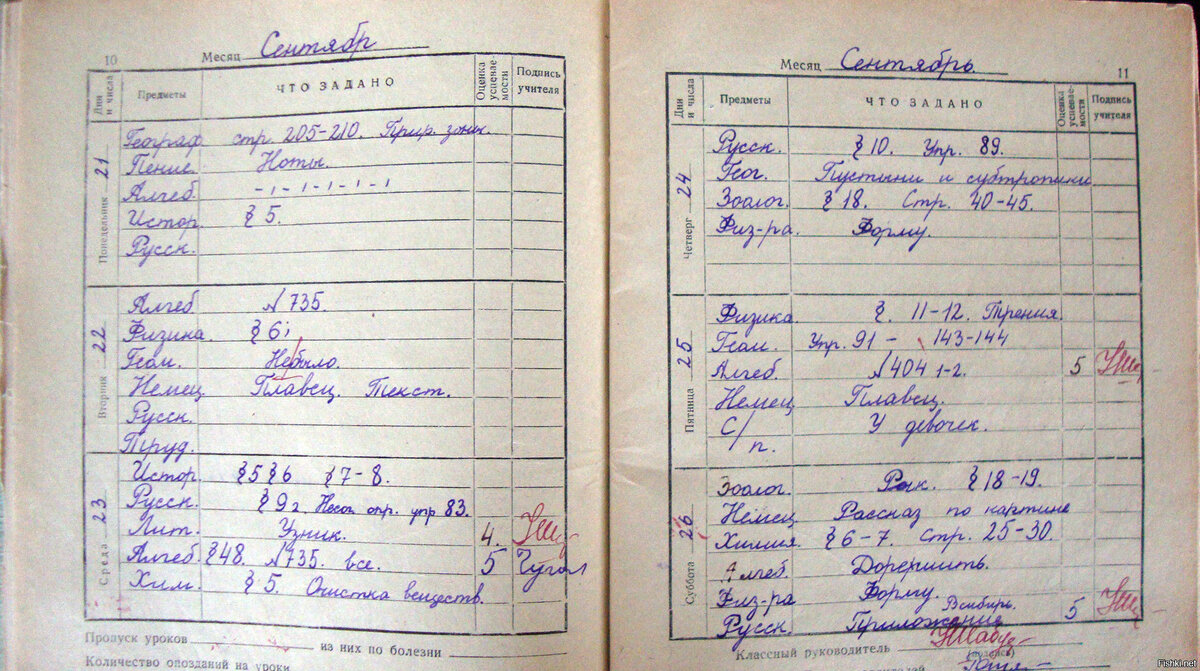 10 Месяц Сентябр
Дни и числа Предметы ЧТО ЗАДАНО Оценка успеваемости Подпись учителя
Понедельник 21
Географ. стр. 205-210. Прир. зоны.
Пение. Ноты.
Алгеб. -1-1-1-1-1
Истор. § 5.
Русск.
Вторник 22
Алгеб. №735.
Физика. § 6;
Геом. Небыло.
Немец. Плавец. Текст.
Русск.
Труд.
Среда 23
Истор. §5 §6 §7-8.
Русск. §9 упр 83.
Лит. Узник. 4.
Алгеб. §48. №735. все. 5
Хим. § 5. Очистка веществ.
Пропуск уроков из них по болезни
Количество опозданий на уроки
Месяц Сентябрь. 11
Дни и числа Предметы ЧТО ЗАДАНО Оценка успеваемости Подпись учителя
Четверг 24
Русск. § 10. Упр. 89.
Геог. Пустыни и субтропики
Зоолог. § 18. Стр. 40-45.
Физ-ра. Форму.
Пятница 25
Физика. §. 11-12. Трения.
Геом. Упр. 91 - 143-144
Алгеб. №404 1-2. 5
Немец. Плавец.
С/п. У девочек.
Суббота 26
Зоолог. Рак. § 18-19.
Немец. Рассказ по картине
Химия. § 6-7. Стр. 25-30.
Алгеб. Дорешить.
Физ-ра Форму.
Русск. Приложение 5
Классный руководитель
Fishki.net